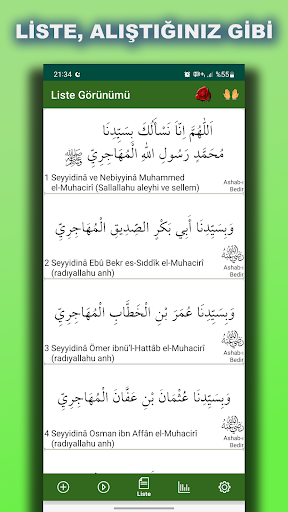 LİSTE, ALIŞTIĞINIZ GİBİ
21:34
%55
Liste Görünümü
اَللّٰهُمَّ اِنَّا نَسْأَلُكَ بِسَيِّدِنَا
مُحَمَّدٍ رَسُولِ اللهِ الْمُهَاجِرِيِّ ﷺ
1 Seyyidinâ ve Nebiyyinâ Muhammed
el-Muhacirî (Sallallahu aleyhi ve sellem)
Ashab-ı
Bedir
وَبِسَيِّدِنَا أَبِي بَكْرٍ الصِّدِيقِ الْمُهَاجِرِيِّ
2 Seyyidinâ Ebû Bekr es-Sıddîk el-Muhacirî
(radıyallahu anh)
Ashab-ı
Bedir
وَبِسَيِّدِنَا عُمَرَ بْنِ الْخَطَّابِ الْمُهَاجِرِيِّ
3 Seyyidinâ Ömer ibnü'l-Hattâb el-Muhacirî
(radıyallahu anh)
Ashab-ı
Bedir
وَبِسَيِّدِنَا عُثْمَانَ بْنِ عَفَّانَ الْمُهَاجِرِيِّ
4 Seyyidinâ Osman ibn Affân el-Muhacirî
(radıyallahu anh)
Ashab-ı
Bedir
Liste